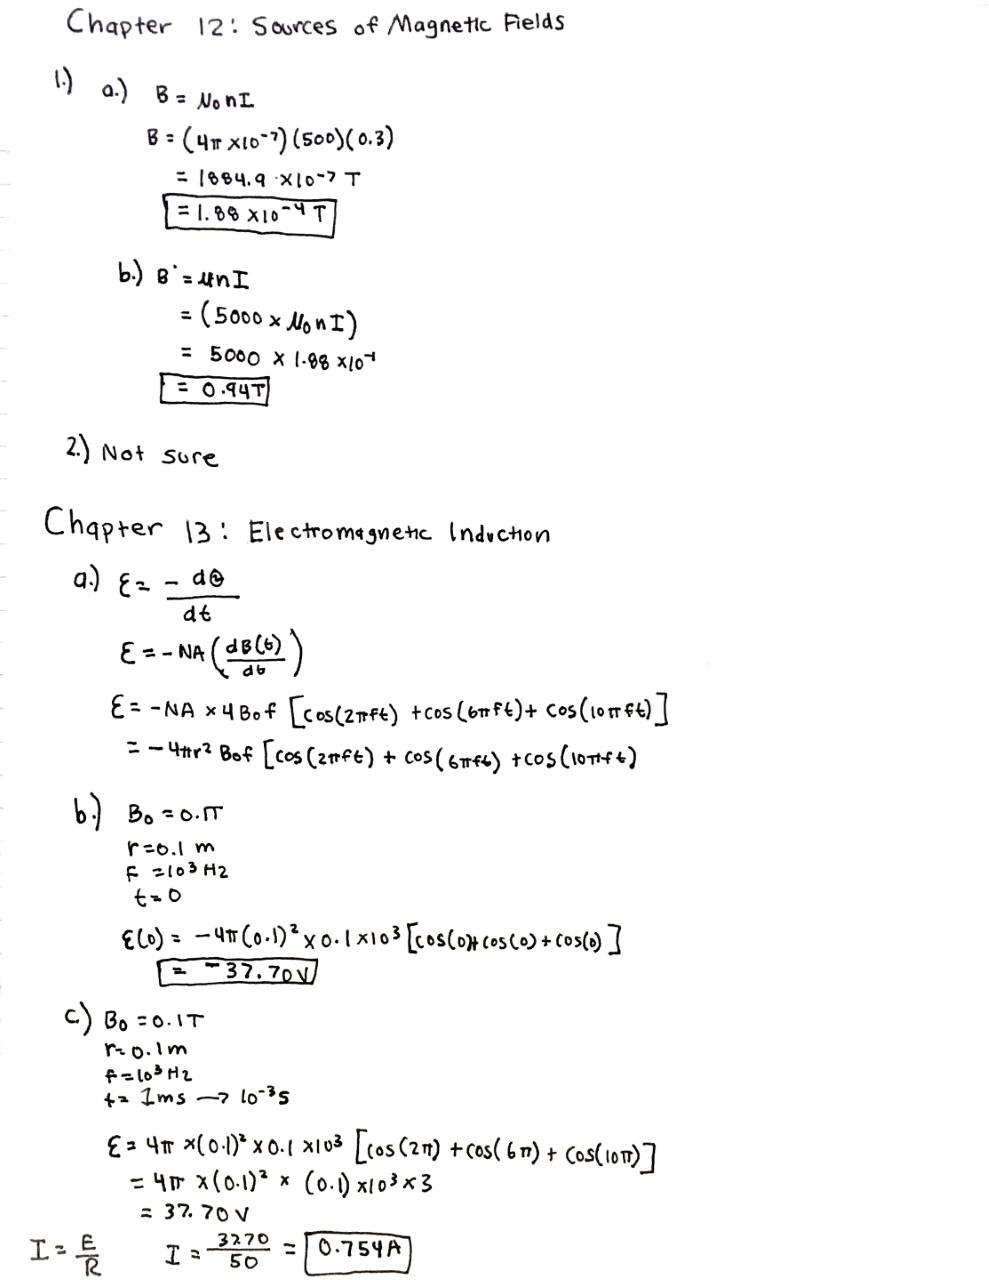 Chapter 12: Sources of Magnetic Fields
1.) a.) B = μ₀nI
B = (4π ×10⁻⁷)(500)(0.3)
= 1884.9 ×10⁻⁷ T
= 1.88 ×10⁻⁴ T
b.) B = μnI
= (5000 × μ₀nI)
= 5000 × 1.88 ×10⁻⁴
= 0.94T
2.) Not sure
Chapter 13: Electromagnetic Induction
a.) Ɛ = - dΦ/dt
Ɛ = -NA (dB(t)/dt)
Ɛ = -NA × 4B₀f [cos(2πft) + cos(6πft) + cos(10πft)]
= -4πr² B₀f [cos(2πft) + cos(6πft) + cos(10πft)
b.) B₀ = 0.1T
r = 0.1 m
f = 10³ Hz
t = 0
Ɛ(0) = -4π(0.1)² × 0.1 × 10³ [cos(0) + cos(0) + cos(0)]
= -37.70V
c.) B₀ = 0.1T
r = 0.1m
f = 10³ Hz
t = 1ms → 10⁻³s
Ɛ = 4π ×(0.1)² × 0.1 ×10³ [cos(2π) + cos(6π) + cos(10π)]
= 4π ×(0.1)² × (0.1) ×10³ ×3
= 37.70 V
I = E/R I = 3770/50 = 0.754A